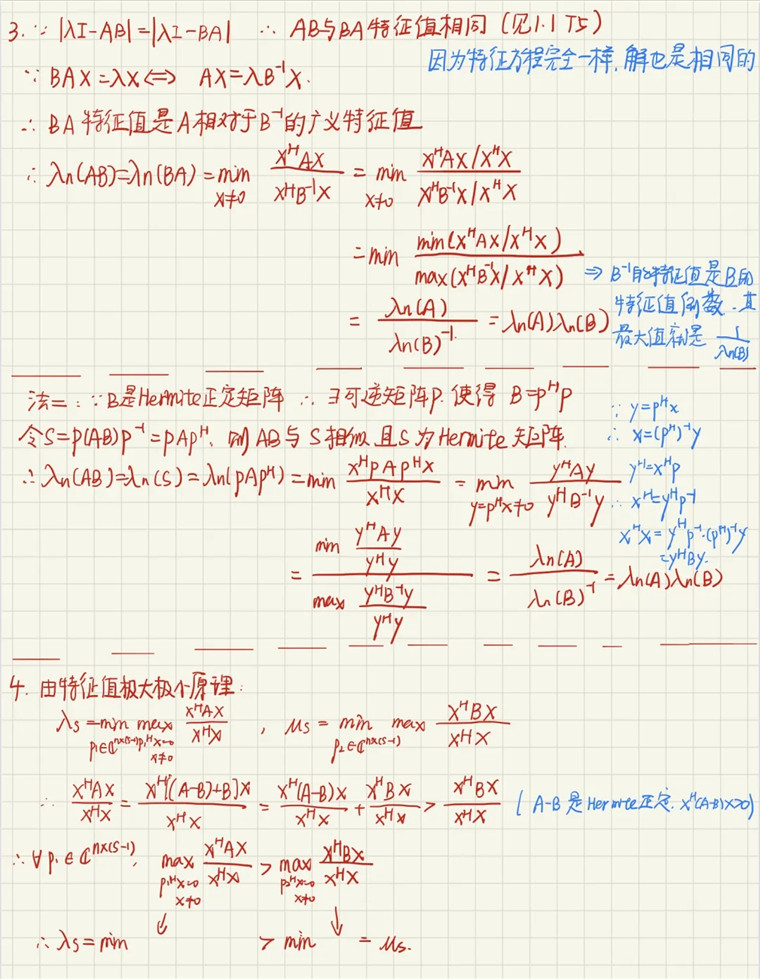 3. ∵ |λI-AB|=|λI-BA| ∴ AB与BA特征值相同 (见1.1 T5)
因为特征方程完全一样,解也是相同的
∵ BAX=λX ⇔ AX=λB⁻¹X.
∴ BA特征值是A相对于B⁻¹的广义特征值
∴ λn(AB)=λn(BA) = min_{X≠0} X^H AX / X^H B⁻¹X = min_{X≠0} (X^H AX/X^H X) / (X^H B⁻¹X/X^H X)
= min min(X^H AX/X^H X) / max(X^H B⁻¹X/X^H X)
⇒ B⁻¹的特征值是B的
特征值倒数.其
最大值就是 1/λn(B)
= λn(A) / λn(B)⁻¹ = λn(A)λn(B)
法二: ∵ B是Hermite正定矩阵 ∴ ∃可逆矩阵P.使得 B=P^H P
令S=P(AB)P⁻¹=PAP^H, 则AB与S相似,且S为Hermite矩阵.
∴ λn(AB)=λn(S)=λn(PAP^H)=min X^H PAP^H X / X^H X = min_{y=P^H X≠0} y^H Ay / y^H B⁻¹y
∵ y=P^H x
∴ x=(P^H)⁻¹y
y^H=x^H P
∴ x^H=y^H P⁻¹
x^H x = y^H P⁻¹·(P^H)⁻¹y
=y^H By.
= (min y^H Ay / y^H y) / (max y^H B⁻¹y / y^H y) = λn(A) / λn(B)⁻¹ = λn(A)λn(B)
4. 由特征值极大极小原理:
λs = min_{P₁∈ℂ^{n×(s-1)}} max_{P₁^H X=0, X≠0} X^H AX / X^H X , μs = min_{P₂∈ℂ^{n×(s-1)}} max X^H BX / X^H X
∴ X^H AX / X^H X = X^H[(A-B)+B]X / X^H X = X^H(A-B)X / X^H X + X^H BX / X^H X > X^H BX / X^H X (A-B是Hermite正定. X^H(A-B)X>0)
∴ ∀P₁∈ℂ^{n×(s-1)}, max_{P₁^H X=0, X≠0} X^H AX / X^H X > max_{P₂^H X=0, X≠0} X^H BX / X^H X
∴ λs = min ↓ > min ↓ = μs.